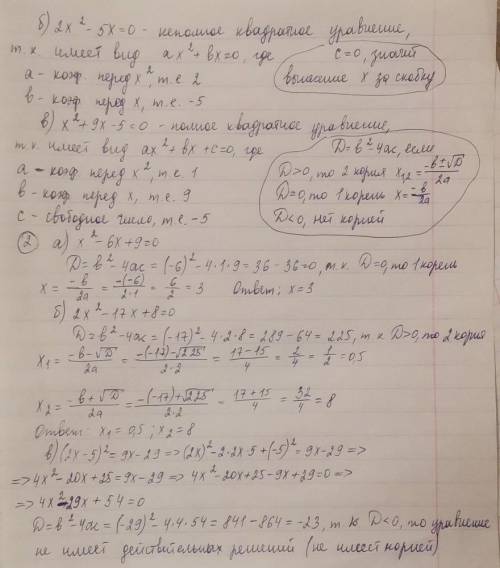 б) 2x² - 5x = 0 - неполное квадратное уравнение,
т.к. имеет вид ax² + bx = 0, где
c = 0, значит
a - коэф. перед x², т.е. 2
выносим x за скобку
b - коэф. перед x, т.е. -5
в) x² + 9x - 5 = 0 - полное квадратное уравнение,
т.к. имеет вид ax² + bx + c = 0, где
D = b² 4ac, если
a - коэф. перед x², т.е. 1
D > 0, то 2 корня x₁,₂ = (-b ± √D)/2a
b - коэф. перед x, т.е. 9
D = 0, то 1 корень x = -b/2a
c - свободное число, т.е. -5
D < 0, нет корней
② а) x² - 6x + 9 = 0
D = b² - 4ac = (-6)² - 4·1·9 = 36 - 36 = 0, т.к. D = 0, то 1 корень
x = -b/2a = -(-6)/2·1 = 6/2 = 3 Ответ: x = 3
б) 2x² - 17x + 8 = 0
D = b² - 4ac = (-17)² - 4·2·8 = 289 - 64 = 225, т.к D > 0, то 2 корня
x₁ = (-b - √D)/2a = (-(-17) - √225)/2·2 = (17 - 15)/4 = 2/4 = 1/2 = 0,5
x₂ = (-b + √D)/2a = (-(-17) + √225)/2·2 = (17 + 15)/4 = 32/4 = 8
Ответ: x₁ = 0,5; x₂ = 8
в) (2x - 5)² = 9x - 29 => (2x)² - 2·2x·5 + (-5)² = 9x - 29 =>
=> 4x² - 20x + 25 = 9x - 29 => 4x² - 20x + 25 - 9x + 29 = 0 =>
=> 4x² - 29x + 54 = 0
D = b² - 4ac = (-29)² - 4·4·54 = 841 - 864 = -23, т.к D < 0, то уравнение
не имеет действительных решений (не имеет корней)